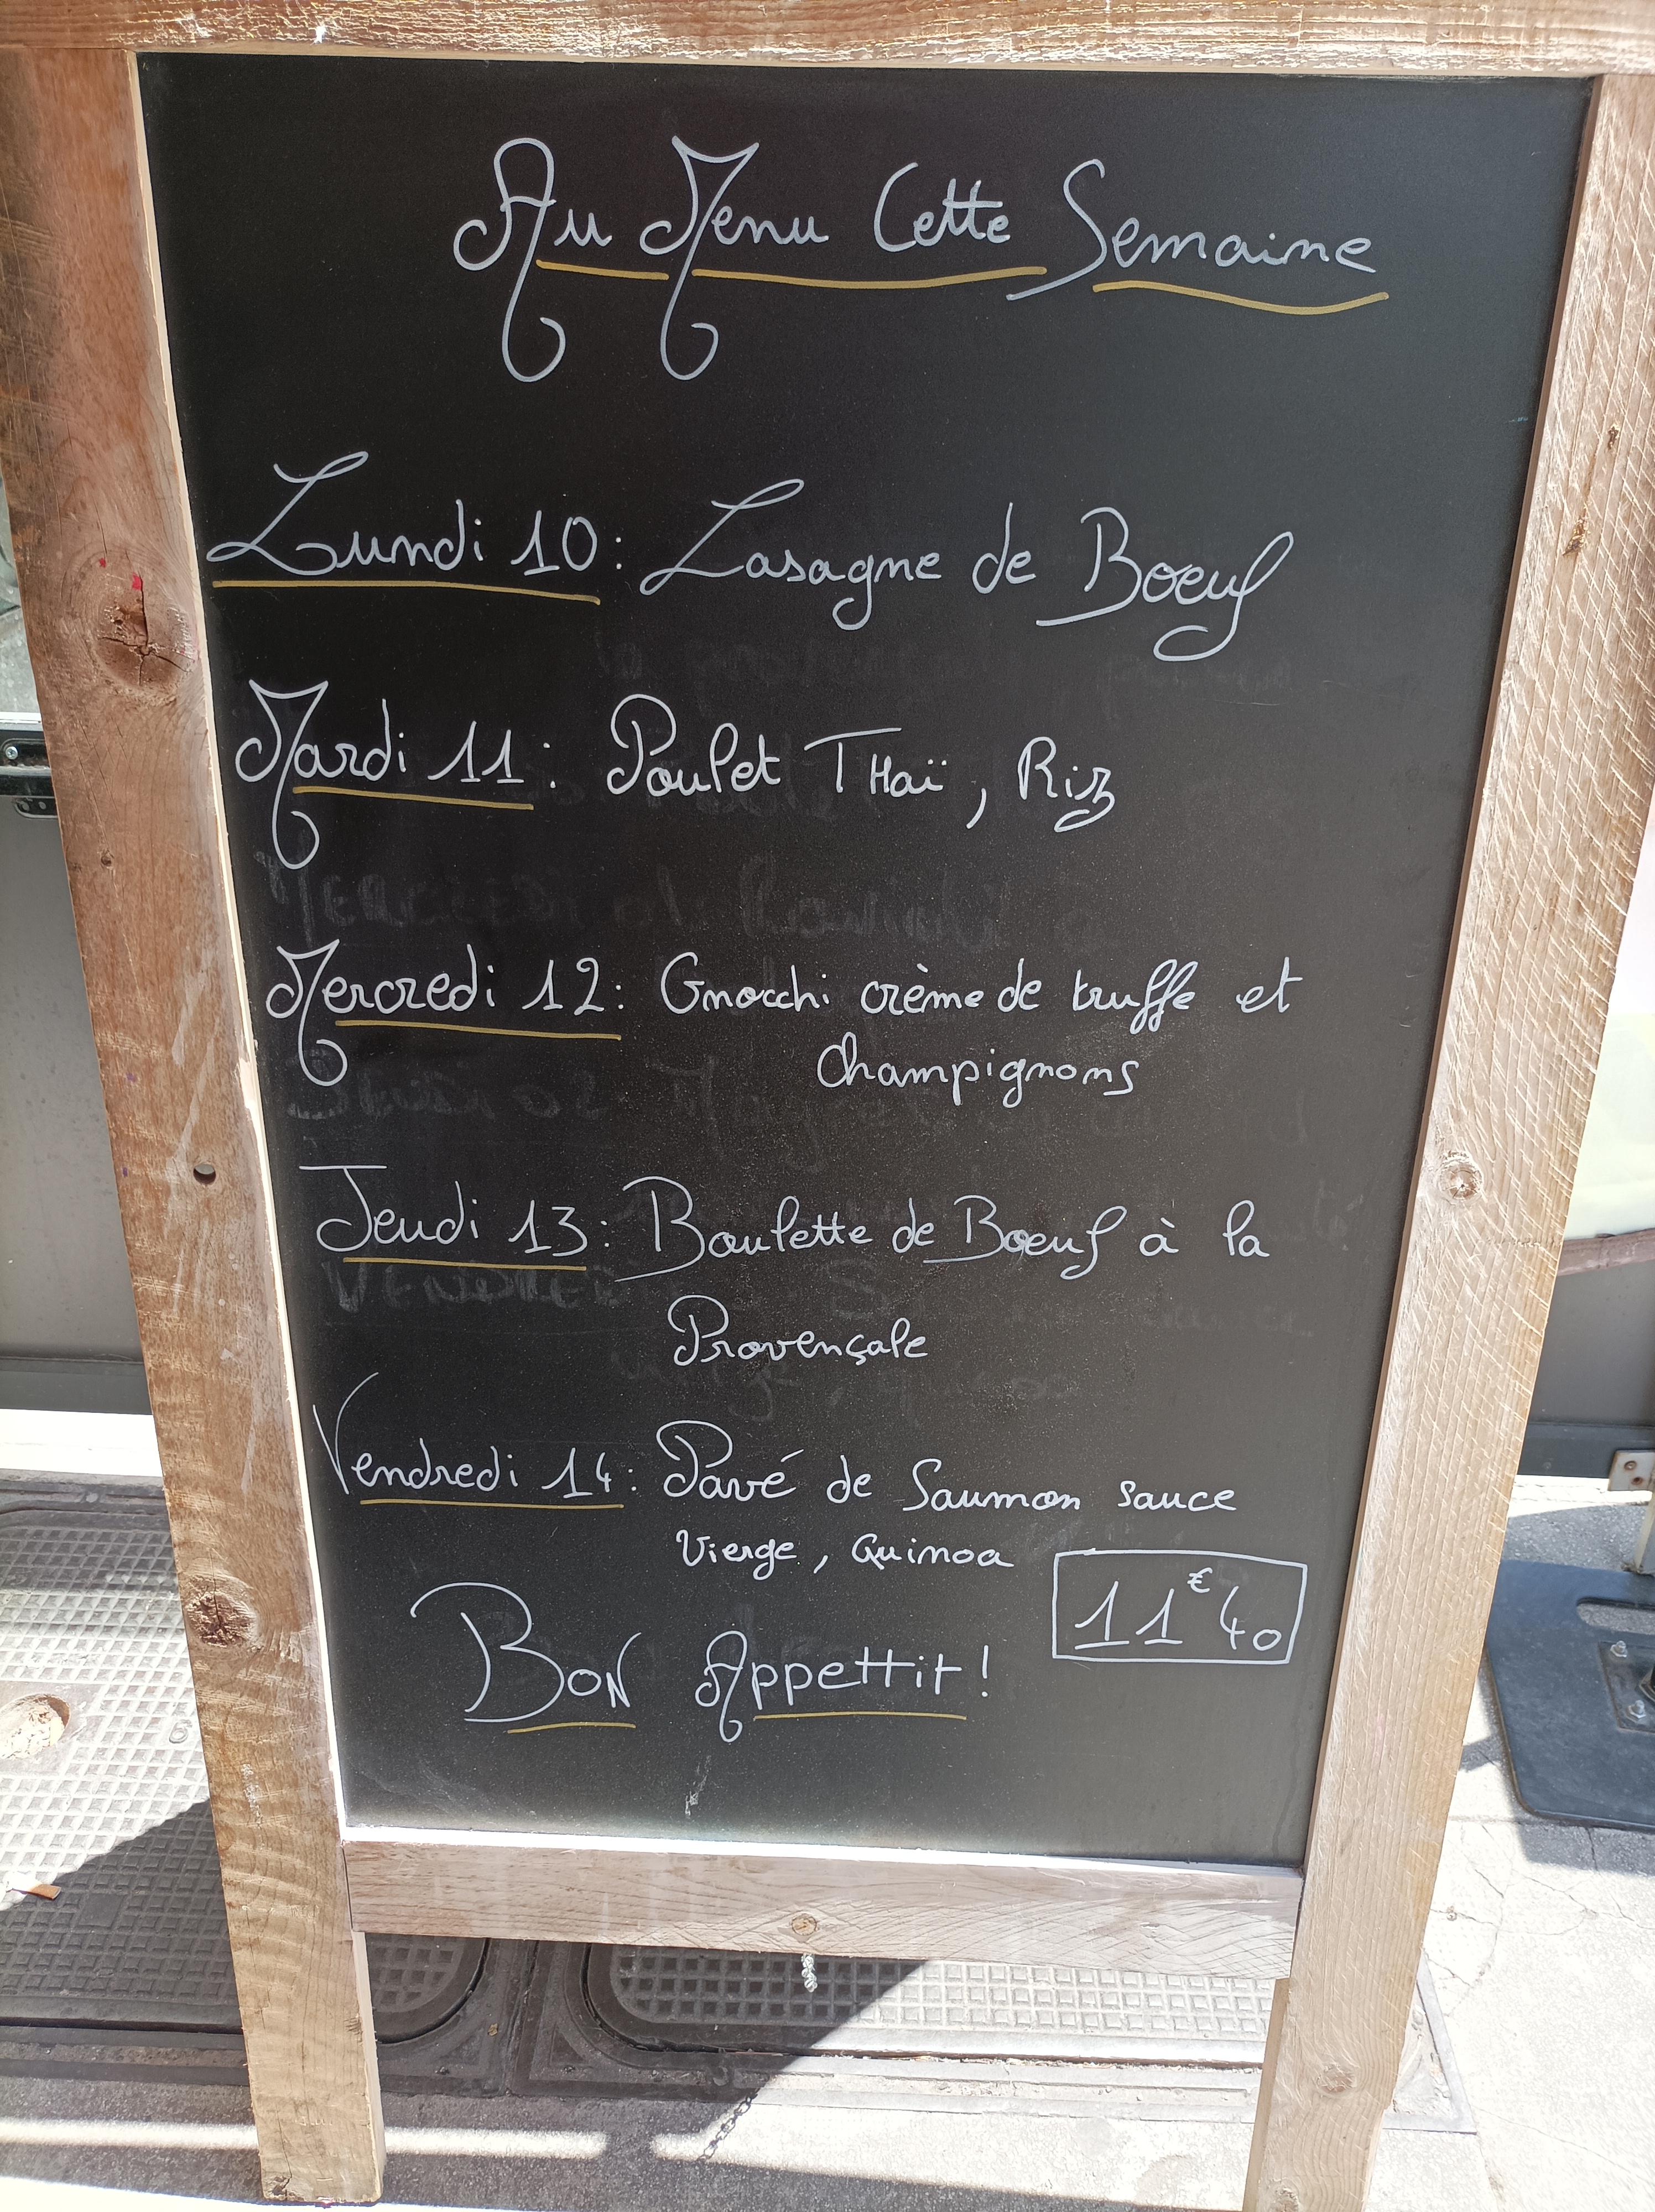 Au Menu Cette Semaine
Lundi 10: Lasagne de Boeuf
Mardi 11: Poulet THaï, Riz
Mercredi 12: Gnocchi crème de truffe et
Champignons
Jeudi 13: Boulette de Boeuf à la
Provençale
Vendredi 14: Pavé de Saumon sauce
Vierge, Quinoa
11€40
BON Appettit!